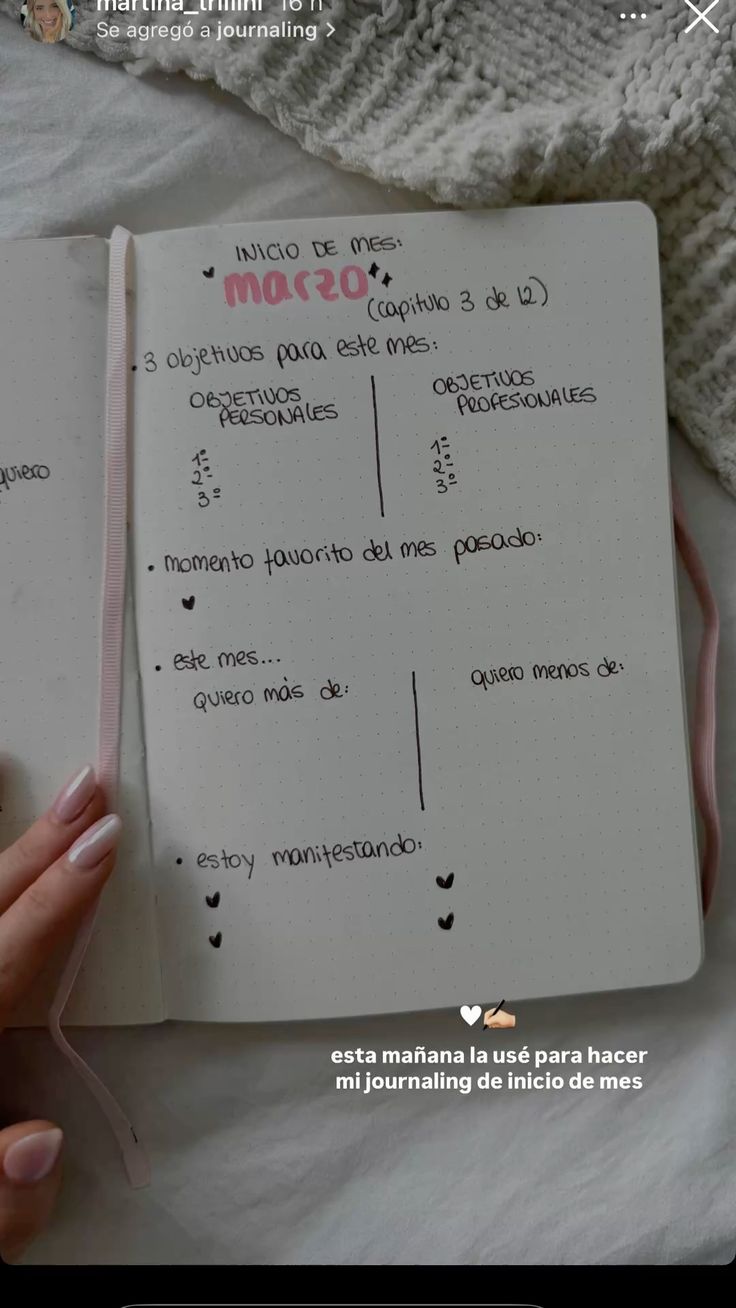 martina_trillini 16 h
Se agregó a journaling >
INICIO DE MES:
marzo
(capitulo 3 de 12)
• 3 objetivos para este mes:
OBJETIVOS PERSONALES
OBJETIVOS PROFESIONALES
1º
2º
3º
1º
2º
3º
quiero
• momento favorito del mes pasado:
• este mes...
quiero más de:
quiero menos de:
• estoy manifestando:
esta mañana la usé para hacer
mi journaling de inicio de mes